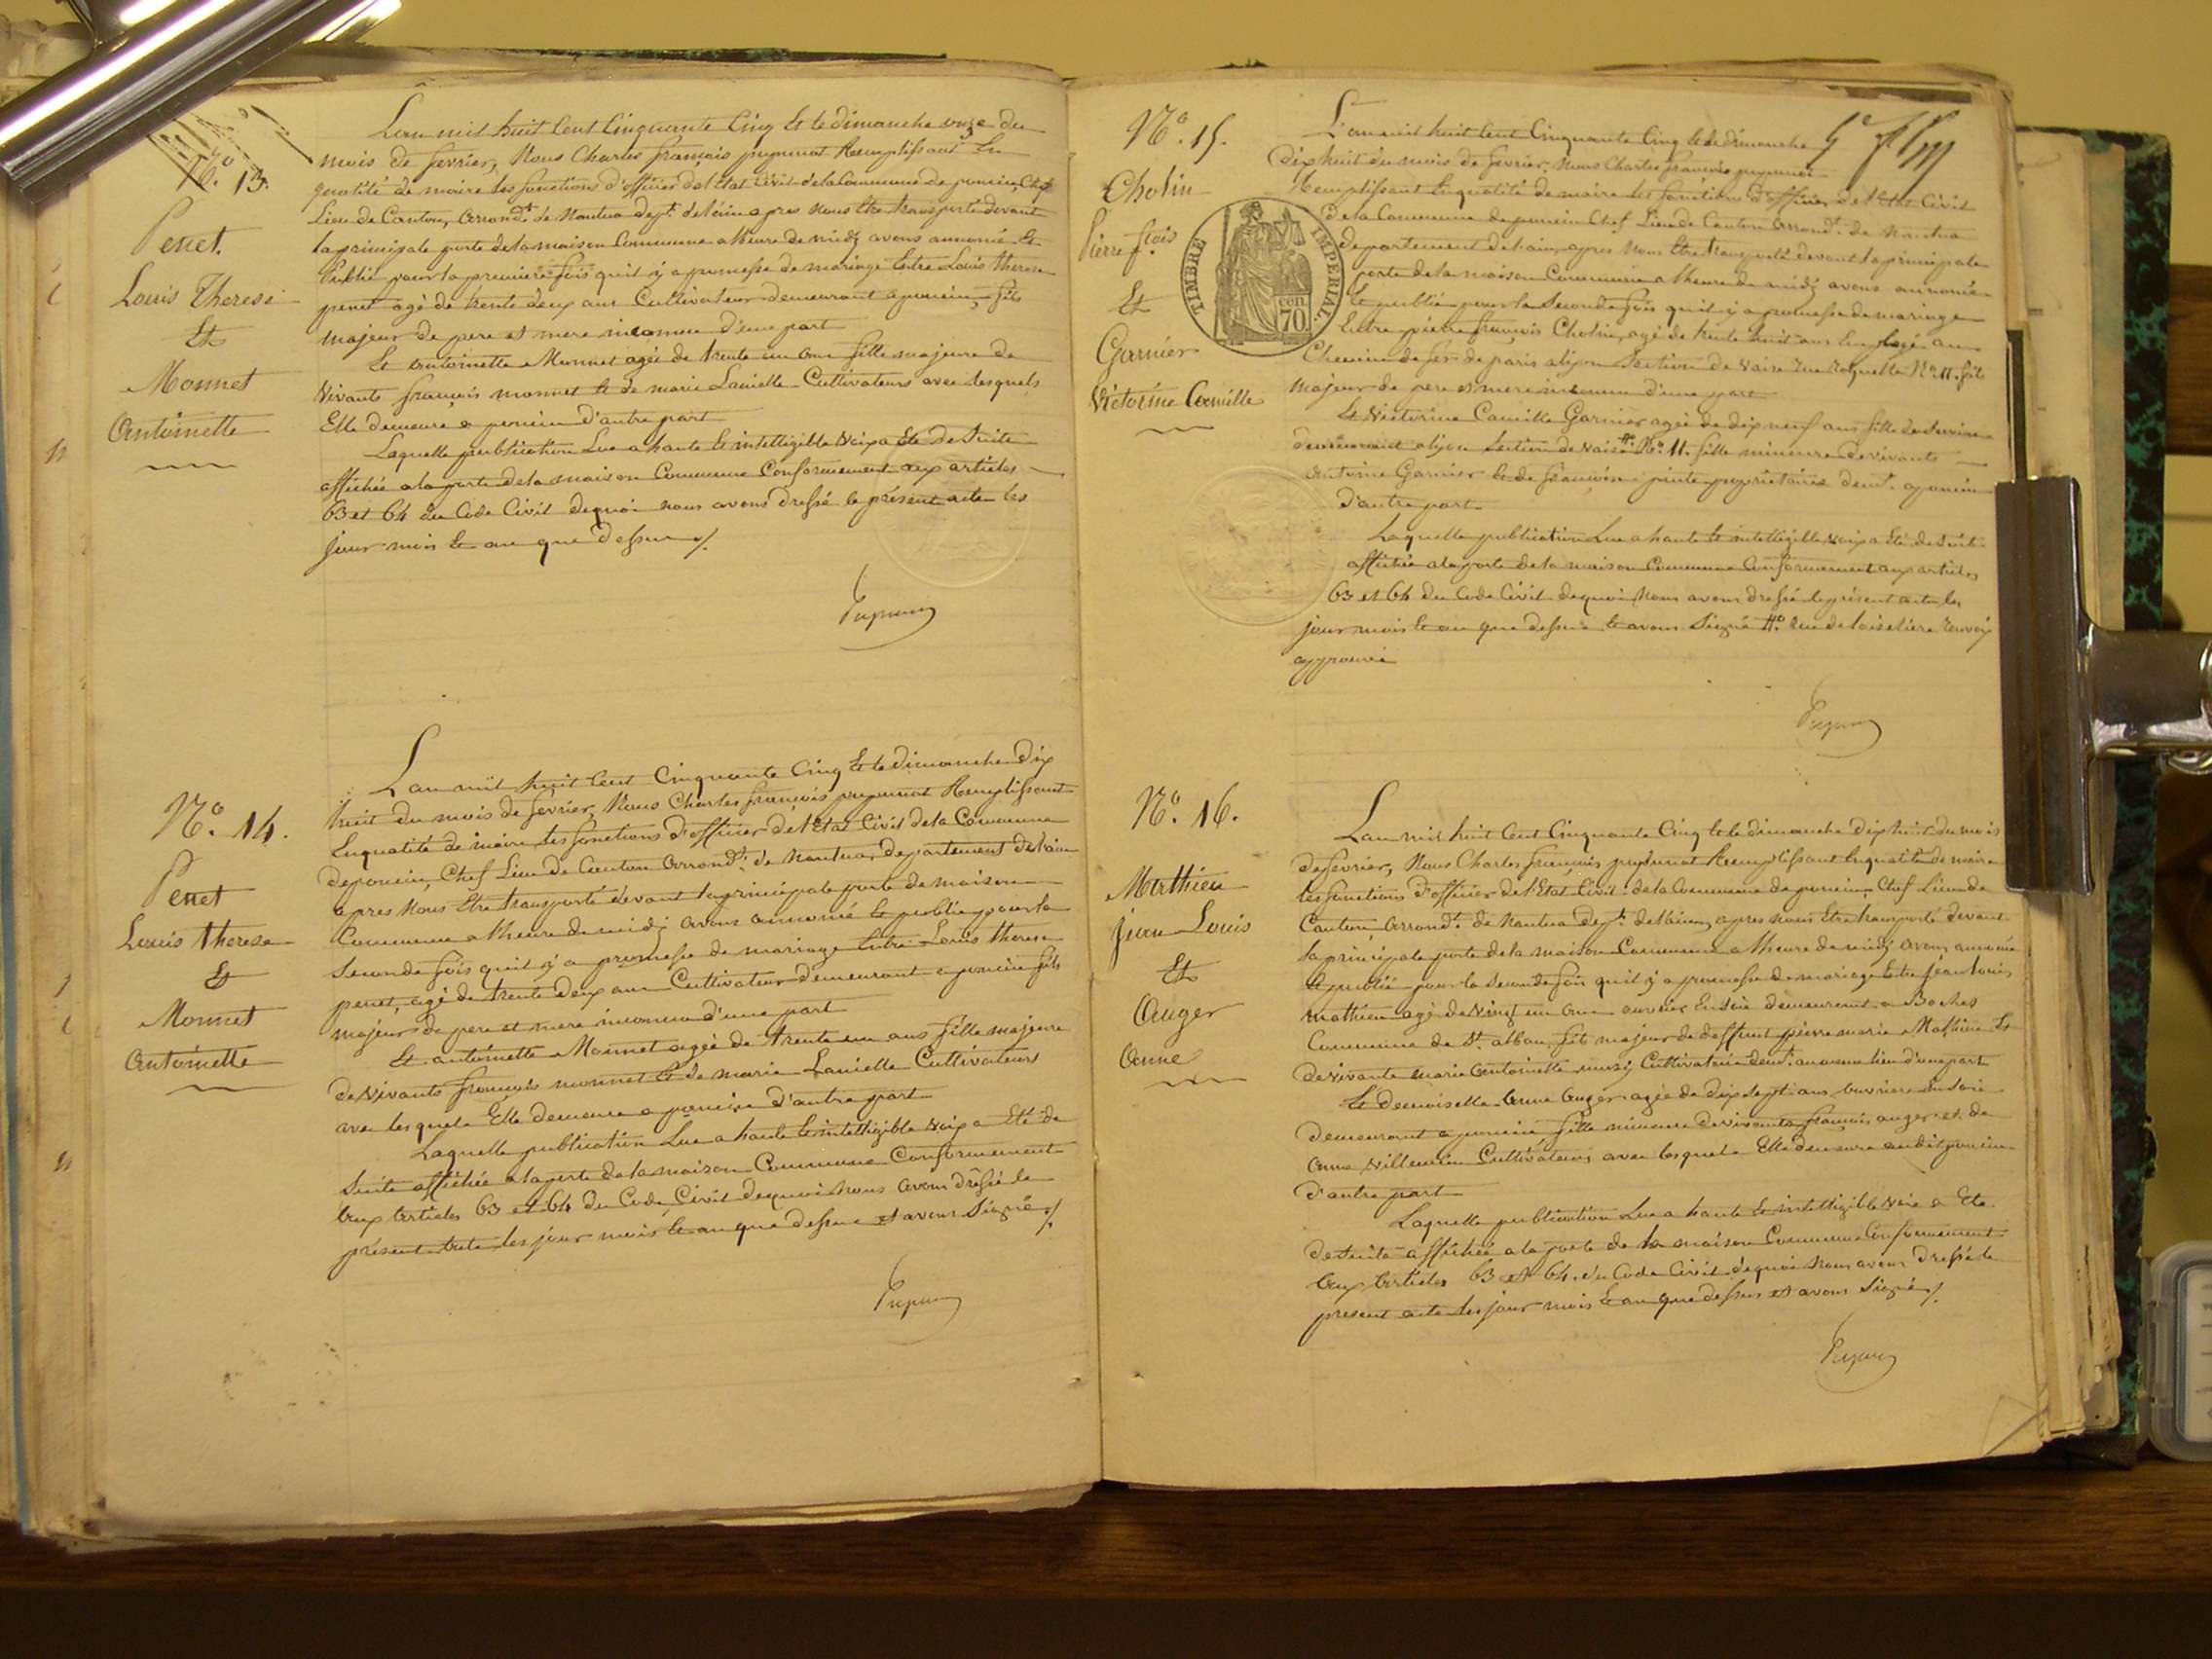 N.o 13.
Penet
Louis Therese
Et
Monnet
Antoinette
L'an mil huit Cent Cinquante Cinq Et le dimanche onze du
mois de fevrier, Nous Charles françois Remplissant En
qualité de maire les fonctions d'officier de l'Etat Civil de la Commune de poncin, Chef
Lieu de Canton, arrond.t de Nantua dep.t de l'ain apres nous Etre transporté devant
la principale porte de la maison Commune a l'heure de midy avons annoncé Et
Publié pour la premiere fois qu'il y a promesse de mariage Entre Louis therese
penet agé de trente deux ans Cultivateur demeurant a poncin, fils
majeur de pere et mere inconnu d'une part
Et antoinette Monnet agée de trente un ans fille majeure de
vivants françois monnet Et de marie Lavielle Cultivateurs avec lesquels
Elle demeure a poncin d'autre part
Laquelle publication Lue a haute Et intelligible voix a Eté de Suite
affichée a la porte de la maison Commune Conformement aux articles
63 et 64 du Code Civil dequoi nous avons dressé le présent acte les
jour mois Et an que dessus /.
N.o 14.
Penet
Louis therese
Et
Monnet
Antoinette
L'an mil huit Cent Cinquante Cinq Et le dimanche Dix
huit du mois de fevrier, Nous Charles françois Remplissant
En qualité de maire les fonctions d'officier de l'Etat Civil de la Commune
de poncin, Chef Lieu de Canton arrond.t de Nantua, departement de l'ain
apres Nous Etre transporté devant la principale porte de maison
Commune a l'heure de midy avons annoncé Et publié pour la
Seconde fois qu'il y a promesse de mariage Entre Louis therese
penet, agé de trente deux ans Cultivateur demeurant a poncin fils
majeur de pere et mere inconnu d'une part
Et antoinette Monnet agée de trente un ans fille majeure
de vivants françois monnet Et de marie Lavielle Cultivateurs
avec lesquels Elle demeure a poncin d'autre part
Laquelle publication Lue a haute Et intelligible voix a Eté de
Suite affichée a la porte de la maison Commune Conformement
aux articles 63 et 64 du Code Civil dequoi Nous avons dressé le
présent acte les jour mois Et an que dessus et avons Signé /.
N.o 15.
Cholin
Pierre f.cois
Et
Garnier
Victorine Camille
TIMBRE IMPERIAL.
cen
70
L'an mil huit Cent Cinquante Cinq Et le dimanche
Dix huit du mois de fevrier, Nous Charles françois
Remplissant En qualité de maire les fonctions d'officier de l'Etat Civil
de la Commune de poncin Chef Lieu de Canton arrond.t de Nantua
departement de l'ain, apres Nous Etre transporté devant la principale
porte de la maison Commune a l'heure de midy avons annoncé
Et publié pour la Seconde fois qu'il y a promesse de mariage
Entre pierre françois Cholin, agé de trente huit ans Employé au
Chemin de fer de paris a lyon Section de Vaise rue N.o 11. fils
majeur de pere et mere inconnu d'une part
Et Victorine Camille Garnier agée de dix neuf ans
demeurant a lyon Section de Vaise N.o 11. fille mineure de vivants
antoine Garnier Et de françoise propriétaires dem.t a poncin
d'autre part
Laquelle publication Lue a haute Et intelligible voix a Eté de Suite
affichée a la porte de la maison Commune Conformement aux articles
63 et 64 du Code Civil dequoi Nous avons dressé le présent acte les
jour mois Et an que dessus Et avons Signé rue de renvoi
approuvé
N.o 16.
Mathieu
jean Louis
Et
Auger
Anne
L'an mil huit Cent Cinquante Cinq Et le dimanche dix huit du mois
de fevrier, Nous Charles françois Remplissant En qualité de maire
les fonctions d'officier de l'Etat Civil de la Commune de poncin, Chef Lieu de
Canton, arrond.t de Nantua dep.t de l'ain, apres nous Etre transporté devant
la principale porte de la maison Commune a l'heure de midy avons annoncé
Et publié pour la Seconde fois qu'il y a promesse de mariage Entre jean louis
mathieu agé de vingt un ans ouvrier En soie demeurant a Boches
Commune de St. alban, fils majeur de deffunt pierre marie Mathieu Et
de vivante marie antoinette Cultivatrice dem.t au meme lieu d'une part
Et demoiselle anne auger agée de dix sept ans ouvriere En soie
demeurant a poncin fille mineure de vivants françois auger et de
anne Cultivateurs avec lesquels Elle demeure audit poncin
d'autre part
Laquelle publication Lue a haute Et intelligible voix a Eté
de Suite affichée a la porte de la maison Commune Conformement
aux articles 63 et 64 du Code Civil dequoi Nous avons dressé le
present acte les jour mois Et an que dessus et avons Signé /.